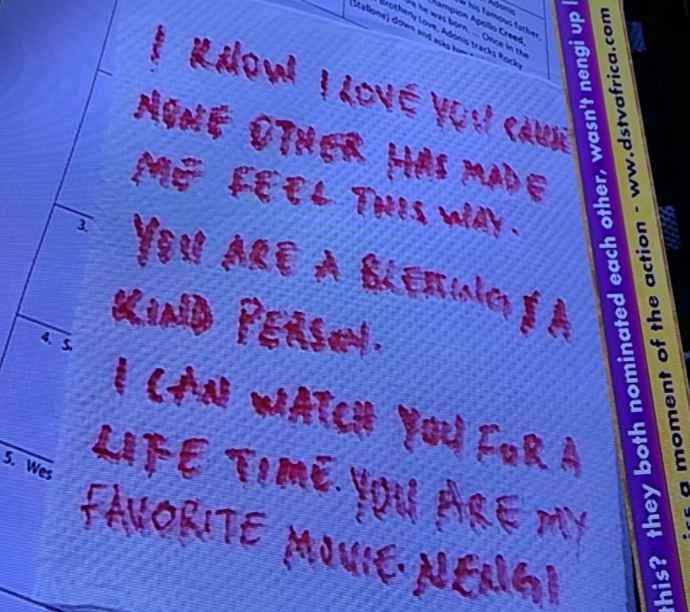 Adonis
his famous father,
Champion Apollo Creed,
he was born... Once in the
Brotherly Love, Adonis tracks Rocky
(Stallone) down and asks
I KNOW I LOVE YOU CAUSE
NONE OTHER HAS MADE
ME FEEL THIS WAY.
YOU ARE A BLESSING & A
KIND PERSON.
I CAN WATCH YOU FOR A
LIFE TIME. YOU ARE MY
FAVORITE MOVIE. NENGI
3.
4. S
5. Wes
this? they both nominated each other, wasn't nengi up
a moment of the action - ww.dstvafrica.com